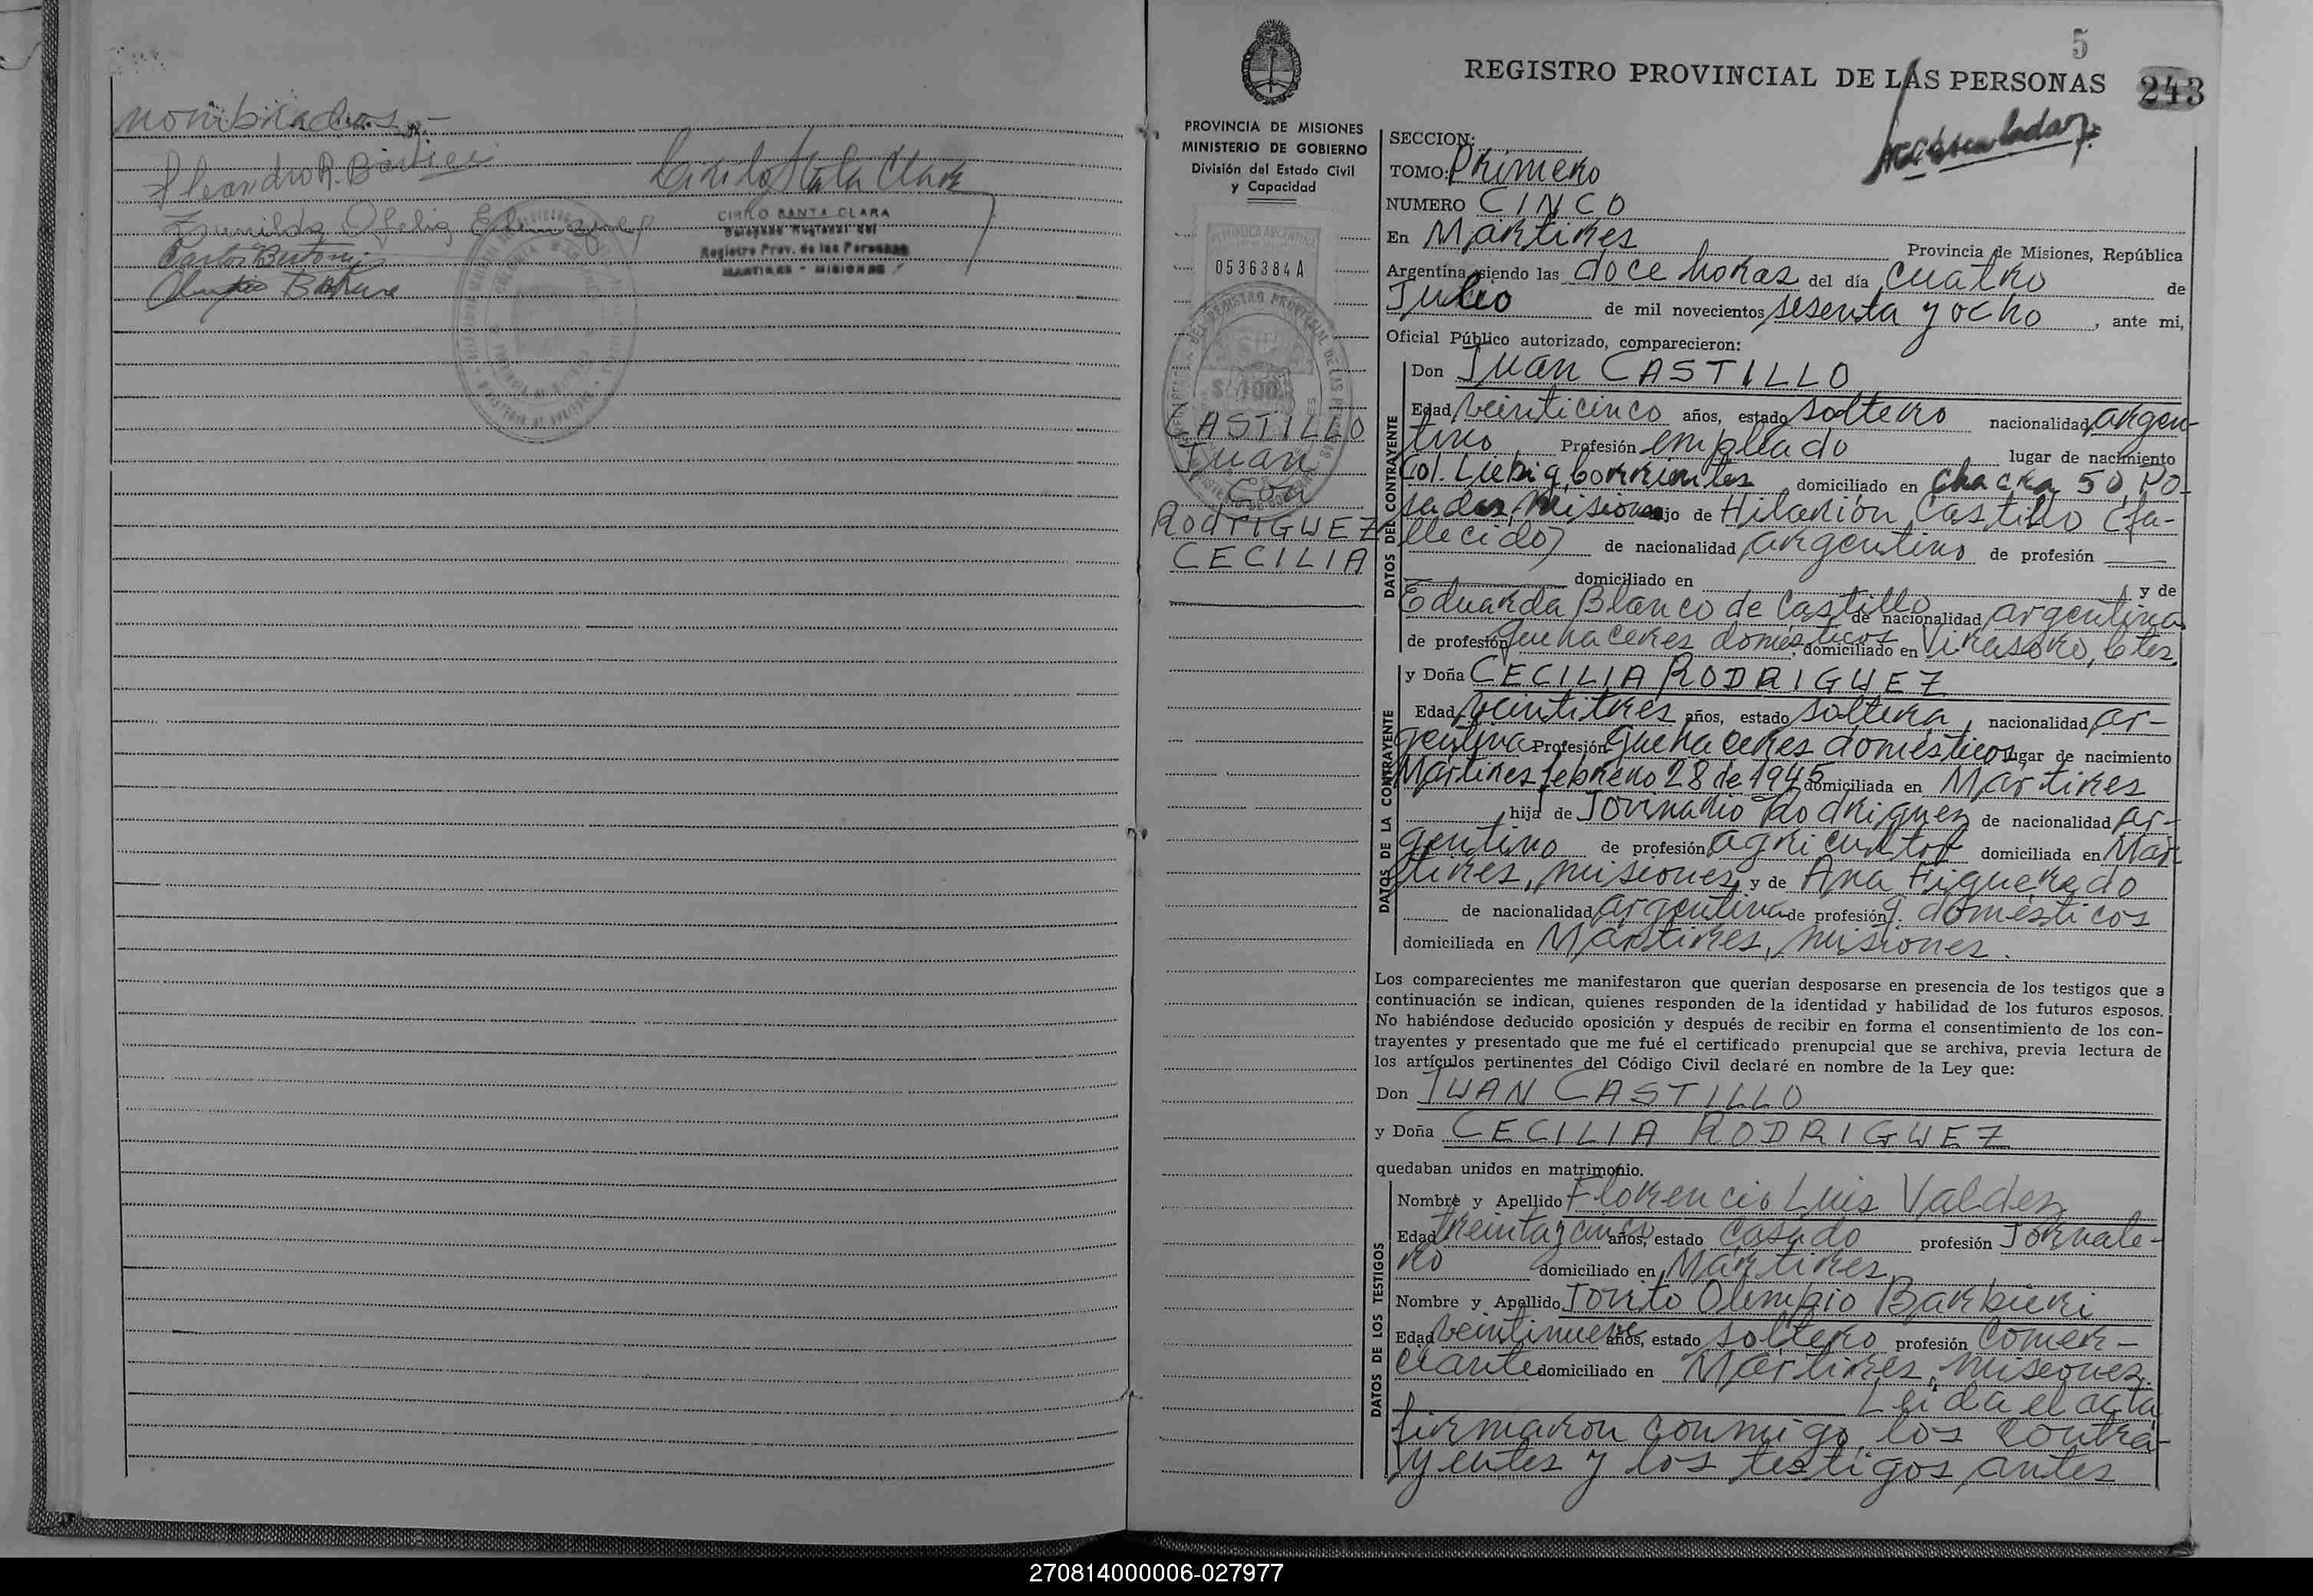 nombrados.-
Aleandro R. Barbieri
Cirilo Santa Clara
Ofelia
CIRILO SANTA CLARA
Delegado Regional del
Registro Prov. de las Personas
MARTIRES - MISIONES
Carlos Bertoni
5
REGISTRO PROVINCIAL DE LAS PERSONAS 243
PROVINCIA DE MISIONES
MINISTERIO DE GOBIERNO
División del Estado Civil
y Capacidad
REPUBLICA ARGENTINA
0536384A
CASTILLO
Juan
con
RODRIGUEZ
CECILIA
SECCION:
TOMO: Primero
NUMERO CINCO
En Martires Provincia de Misiones, República
Argentina, siendo las doce horas del día cuatro de
Julio de mil novecientos sesenta y ocho, ante mi,
Oficial Público autorizado, comparecieron:
DATOS DEL CONTRAYENTE
Don Juan CASTILLO
Edad veinticinco años, estado soltero nacionalidad argen-
tino Profesión empleado lugar de nacimiento
Col. Liebig, Corrientes domiciliado en Chacra 50, Po-
sadas, Misiones hijo de Hilarión Castillo (fa-
llecido) de nacionalidad argentino de profesión
domiciliado en y de
Eduarda Blanco de Castillo de nacionalidad argentina
de profesión quehaceres domésticos domiciliado en Virasoro, Ctes.
DATOS DE LA CONTRAYENTE
y Doña CECILIA RODRIGUEZ
Edad veintitres años, estado soltera, nacionalidad ar-
gentina Profesión quehaceres domésticos lugar de nacimiento
Martires febrero 28 de 1945 domiciliada en Martires
hija de Jovinario Rodriguez de nacionalidad ar-
gentino de profesión agricultor domiciliada en Mar-
tires, misiones y de Ana Figueredo
de nacionalidad argentina de profesión q. domésticos
domiciliada en Martires, misiones.
Los comparecientes me manifestaron que querían desposarse en presencia de los testigos que a
continuación se indican, quienes responden de la identidad y habilidad de los futuros esposos.
No habiéndose deducido oposición y después de recibir en forma el consentimiento de los con-
trayentes y presentado que me fué el certificado prenupcial que se archiva, previa lectura de
los artículos pertinentes del Código Civil declaré en nombre de la Ley que:
Don JUAN CASTILLO
y Doña CECILIA RODRIGUEZ
quedaban unidos en matrimonio.
DATOS DE LOS TESTIGOS
Nombre y Apellido Florencio Luis Valdez
Edad treintaycinco años, estado casado profesión Jornale-
ro domiciliado en Martires
Nombre y Apellido Jovito Olimpio Barbieri
Edad veintinueve años, estado soltero profesión comer-
ciante domiciliado en Martires, misiones.
Leida el acta
firmaron conmigo, los contra-
yentes y los testigos antes
270814000006-027977